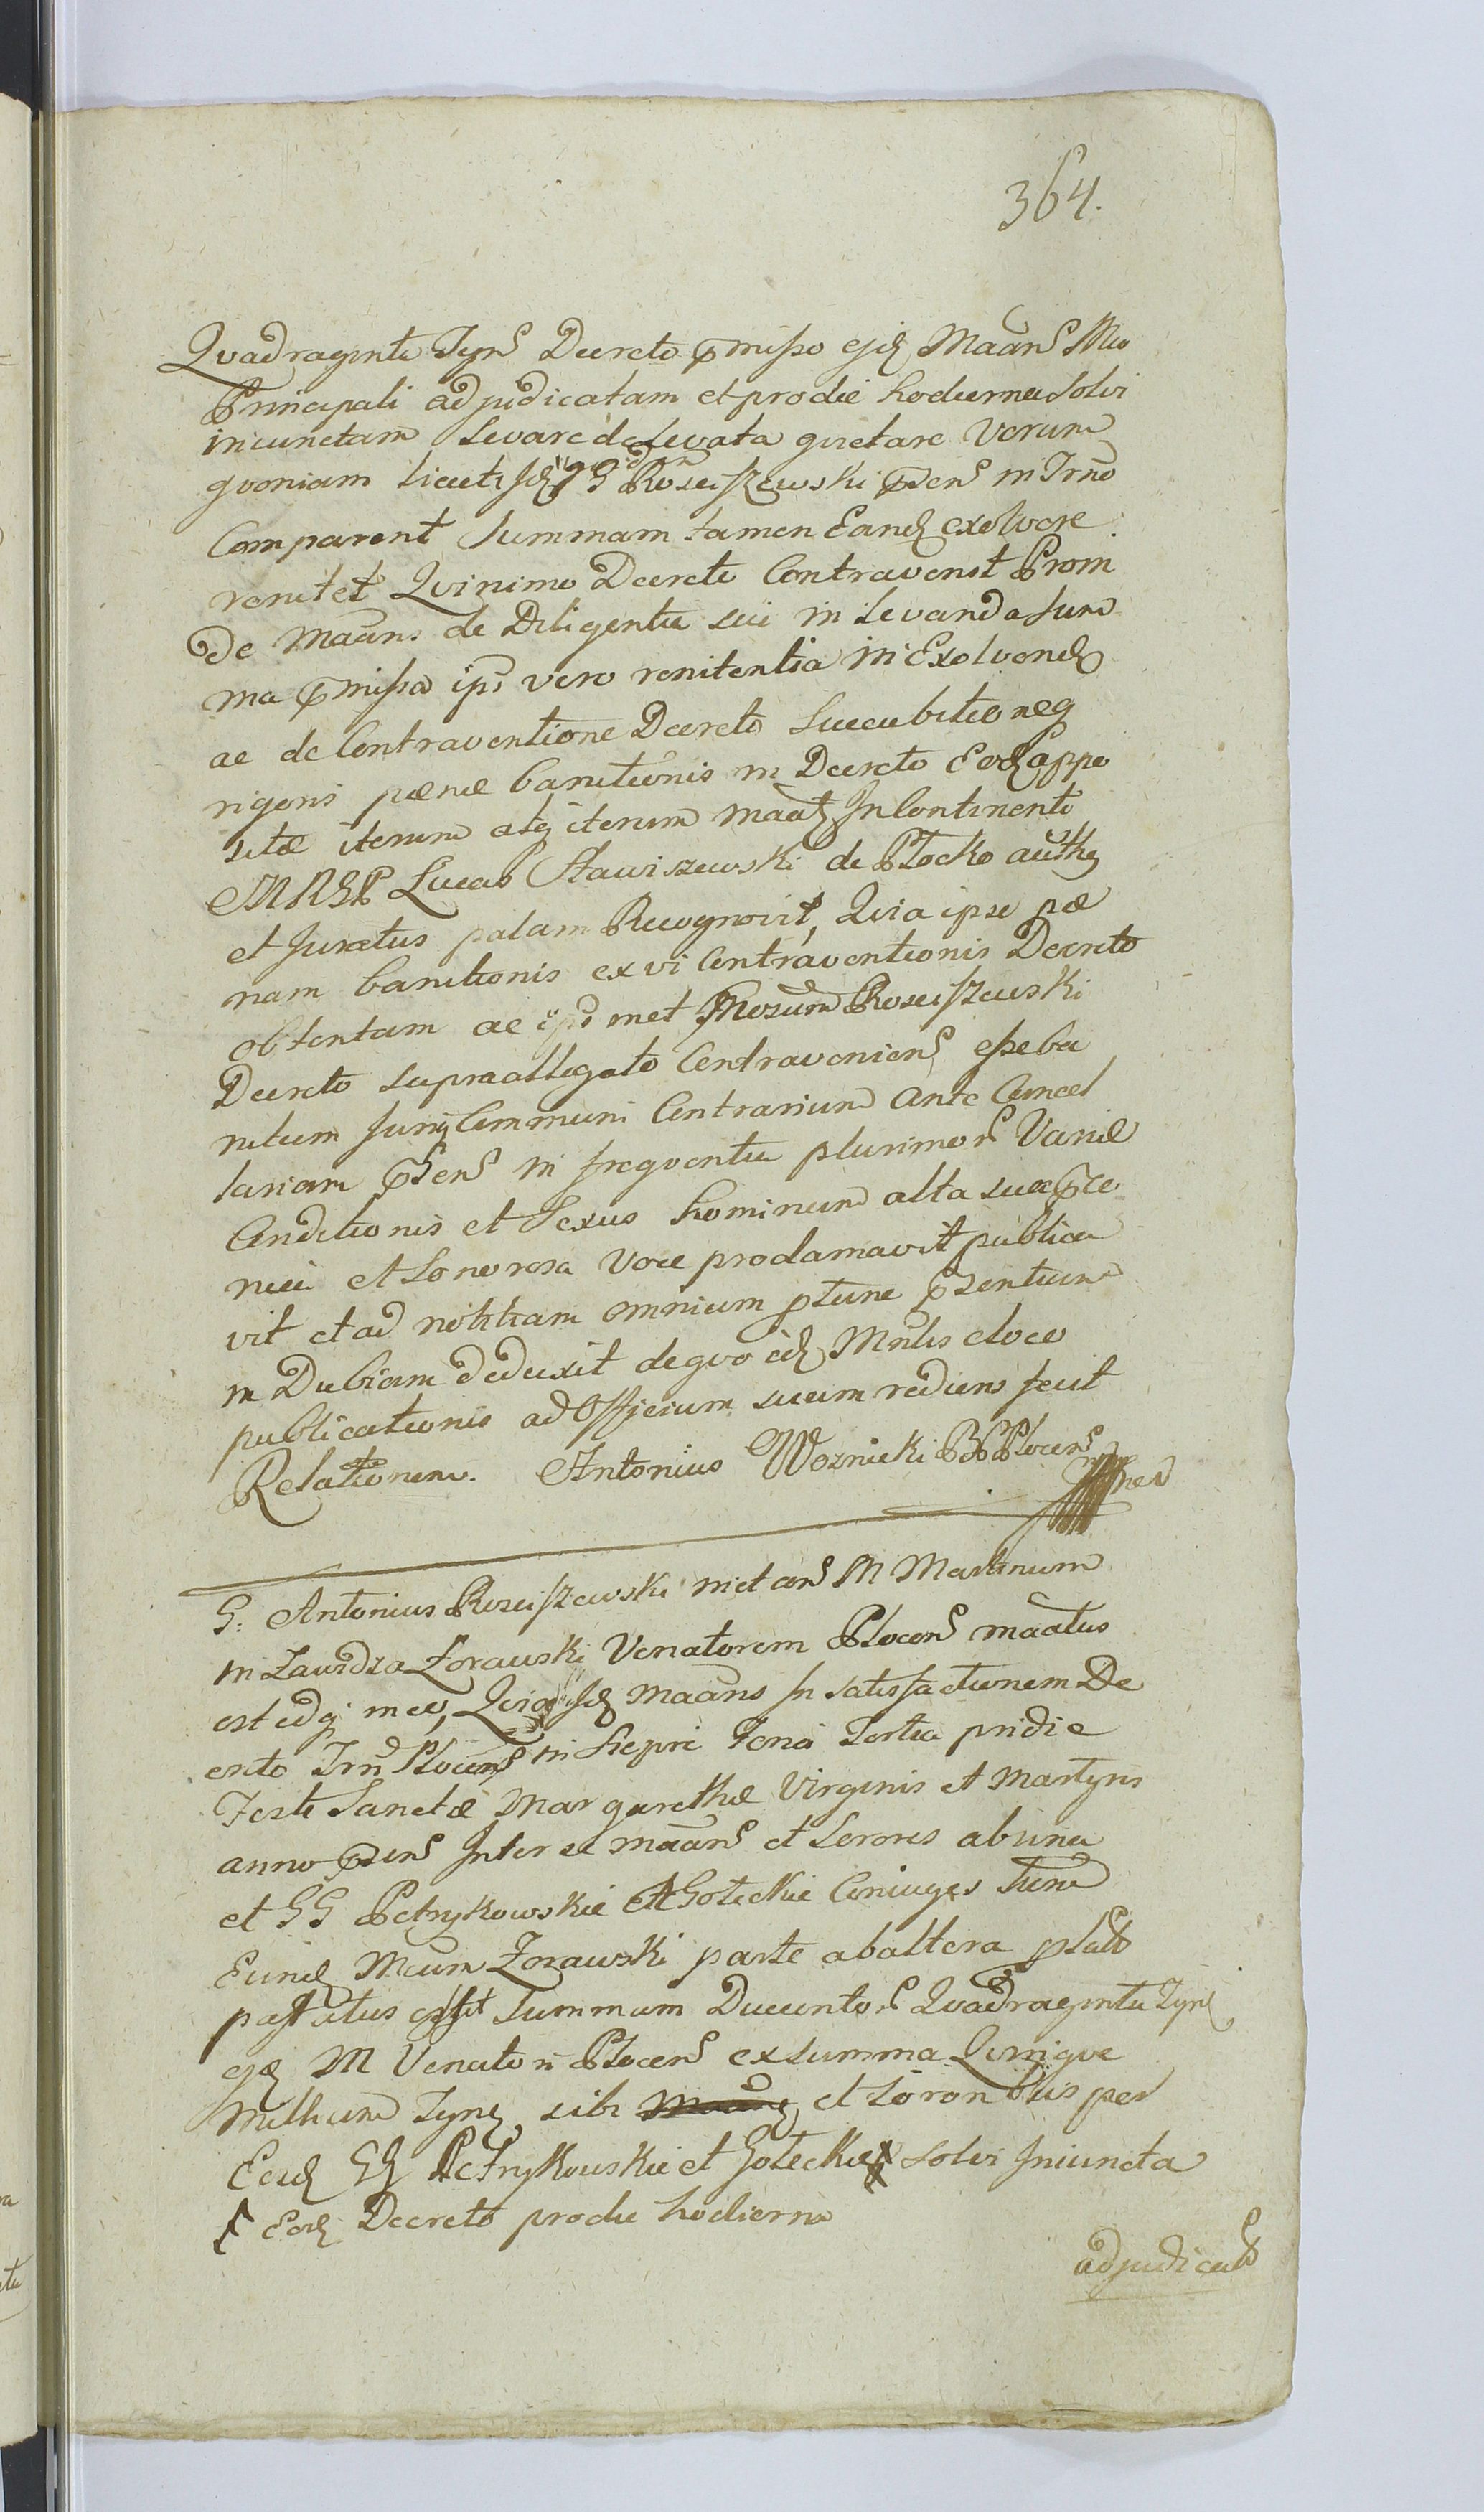 364.
Quadraginta Tynf Decreto pmisso ejd Maāns Mco
Principali adjudicatam et prodie hodierna solvi
iniunctam Levare de Levata quietare Verum
quoniam licet Jd G Rosciszewski pdens in Trno
Comparent Summam tamen Eand exolvere
renitet Quinimo Decreto Contravenit Proin
de Maāns de Diligentia sui in Levanda sum
ma pmissa ipi vero renitentia in Exolvend
ac de Contraventione Decreto succubitioneq
rigoris pænæ bannitionis in Decreto Eod appo
sitæ iterum atq iterum maāt In Continenti
MRGP Lucas Stawiszewski de Plocko auth
et Juratus palam Recognovit, Quia ipse pæ
nam bannitionis ex vi Contraventionis Decreto
obtentam ac ipi met Rosciszewski
Decreto supraallegato Contraveniens esse ba
nitum Juriq Communi Contrarium ante Cancel
lariam pdens in frequentia plurimor Variæ
Conditionis et Sexus hominum alta sua pco
nici et Sonorosa Voce proclamavit publica
vit et ad notitiam omnium ptunc pzentium
in Dubiam deduxit de quo id Mnlis eloco
publicationis ad Officium suum rediens fecit
Relationem. Antonius Woznicki Plocens
G: Antonius Rosciszewski met cons M Martinum
in Zawidza Zorawski Venatorem Plocens maātus
est idq in eo, Quia Jd Maāns In satisfactionem De
creto Trn Plocens in Siepri Feria Tertia pridie
Festi Sanctæ Margarethæ Virginis et Martyris
anno pdens Inter se maāns et Sorores ab una
et GG Petrykowskie et Goleckie Coniuges tum
Eund Mcum Zorawski parte ab altera plato
 Summam Ducentor Quadraginta Tynf
ejd M Venatori Plocens ex summa Quinque
Millium Tynf sibi et Sororibus per
Eosd GG Petrykowskie et Goleckie solvi Iniuncta
Eod Decreto prodie hodierna
adjudicato